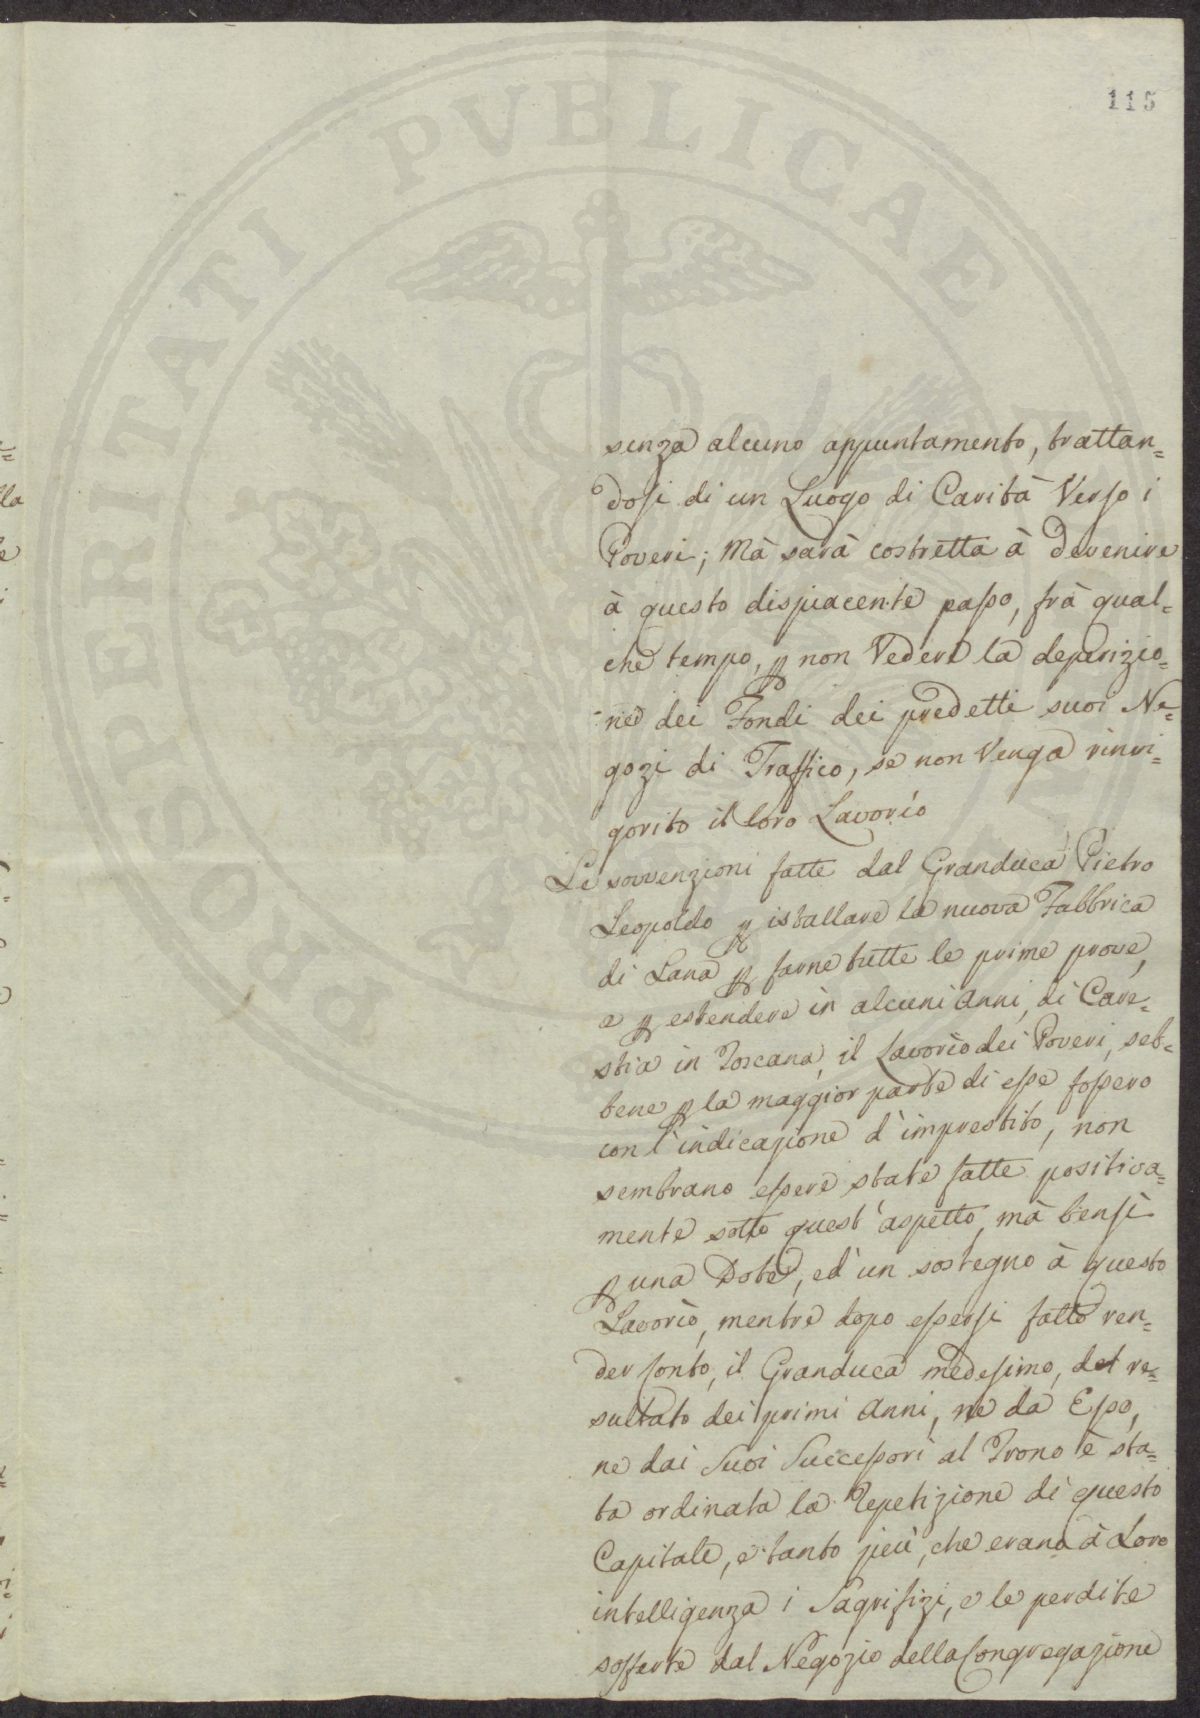 115
PROSPERITATI PVBLICAE
senza alcuno appuntamento, trattan=
dosi di un Luogo di Carità Verso i
Poveri; Mà sarà costretta à devenire
à questo dispiacente passo, frà qual=
che tempo, ꝑ non Vedere la deperizio=
ne dei Fondi dei predetti suoi Ne=
gozi di Traffico, se non Venga rinvi=
gorito il loro Lavorío
Le sovvenzioni fatte dal Granduca Pietro
Leopoldo ꝑ istallare la nuova Fabbrica
di Lana ꝑ farne tutte le prime prove,
e ꝑ estendere in alcuni Anni, di Care=
stia in Toscana, il Lavorìo dei Poveri, seb=
bene ꝑ la maggior parte di esse fossero
con l'indicazione d'imprestito, non
sembrano essere state fatte positiva=
mente sotto quest'aspetto, mà bensì
ꝑ una Dote, ed un sostegno à questo
Lavorìo, mentre dopo essersi fatto ren=
der Conto, il Granduca medesimo, del re=
sultato dei primi Anni, ne da Esso,
ne dai Suoi Successori al Trono è sta=
ta ordinata la Repetizione di questo
Capitale, e tanto più, che erano à Loro
intelligenza i Sagrifizi, e le perdite
sofferte dal Negozio della Congregazione